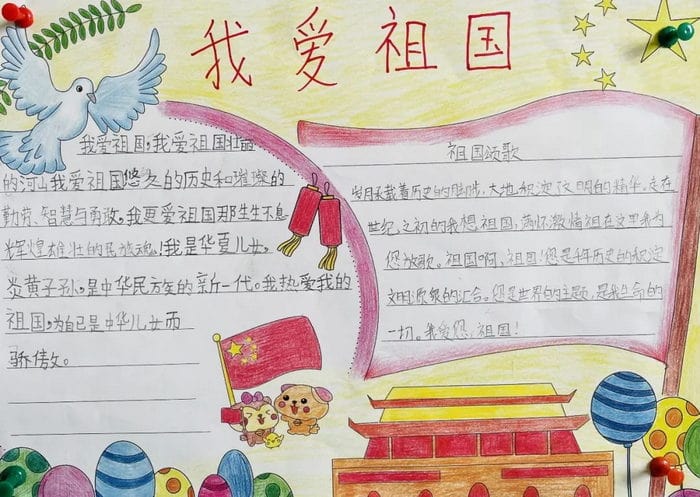 我爱祖国
我爱祖国,我爱祖国壮丽
的河山我爱祖国悠久的历史和璀璨的
勤劳、智慧与勇敢。我更爱祖国那生生不息
辉煌雄壮的民族魂!我是华夏儿女,
炎黄子孙,是中华民族的新一代。我热爱我的
祖国,为自己是中华儿女而
骄傲。
祖国颂歌
岁月承载着历史的脚步,大地积淀文明的精华,走在
世纪之初的我想祖国,满怀激情祖在这里我为
您放歌。祖国啊,祖国!您是千年历史的积淀
文明的汇合。您是世界的主题,是我生命的
一切。我爱您,祖国!